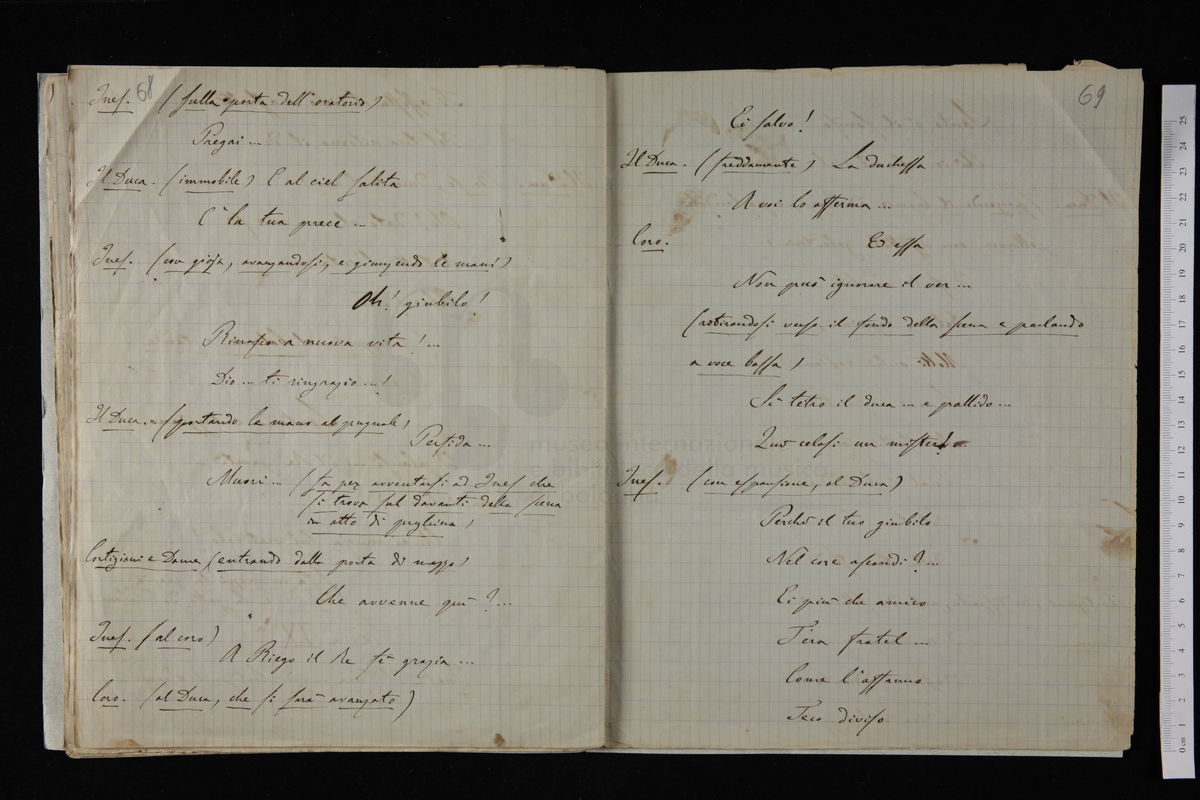 68
Ines. (sulla porta dell'oratorio)
Pregai ...
Il Duca. (immobile) E al ciel salita
È la tua prece ...
Ines. (con gioja, avanzandosi, e giungendo le mani)
Oh! giubilo!
Rinasco a nuova vita! ...
Dio ... ti ringrazio ...!
Il Duca. (portando la mano al pugnale)
Perfida ...
Muori ... (fa per avventarsi ad Ines che
si trova sul davanti della scena
in atto di preghiera)
Cortigiani e Dame (entrando dalla porta di mezzo)
Che avvenne quì? ...
Ines. (al coro)
A Riego il Re fè grazia ...
Coro. (al Duca, che si sarà avanzato)
69
Ei salvo!
Il Duca. (freddamente) La duchessa
A voi lo afferma ...
Coro. Ed essa
Non può ignorare il ver ...
(ritirandosi verso il fondo della scena e parlando
a voce bassa)
Sì tetro il duca ... e pallido ...
Quò celasi un mister!
Ines. (con espansione, al Duca)
Perchè il tuo giubilo
Nel core ascondi? ...
Ei più che amico
T'era fratel ...
Come l'affanno
Teco diviso
museo internazionale
0 cm 1 2 3 4 5 6 7 8 9 10 11 12 13 14 15 16 17 18 19 20 21 22 23 24 25